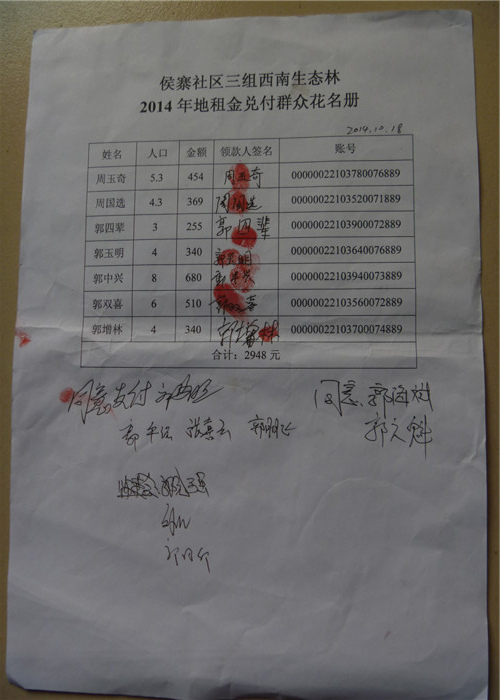 侯寨社区三组西南生态林
2014年地租金兑付群众花名册
2014.10.18
姓名 人口 金额 领款人签名 账号
周玉奇 5.3 454 周玉奇 00000022103780076889
周国选 4.3 369 周国选 00000022103520071889
郭四辈 3 255 郭四辈 00000022103900072889
郭玉明 4 340 郭玉明 00000022103640076889
郭中兴 8 680 郭中兴 00000022103940073889
郭双喜 6 510 郭双喜 00000022103560072889
郭增林 4 340 郭增林 00000022103700074889
合计：2948 元
同意支付
同意